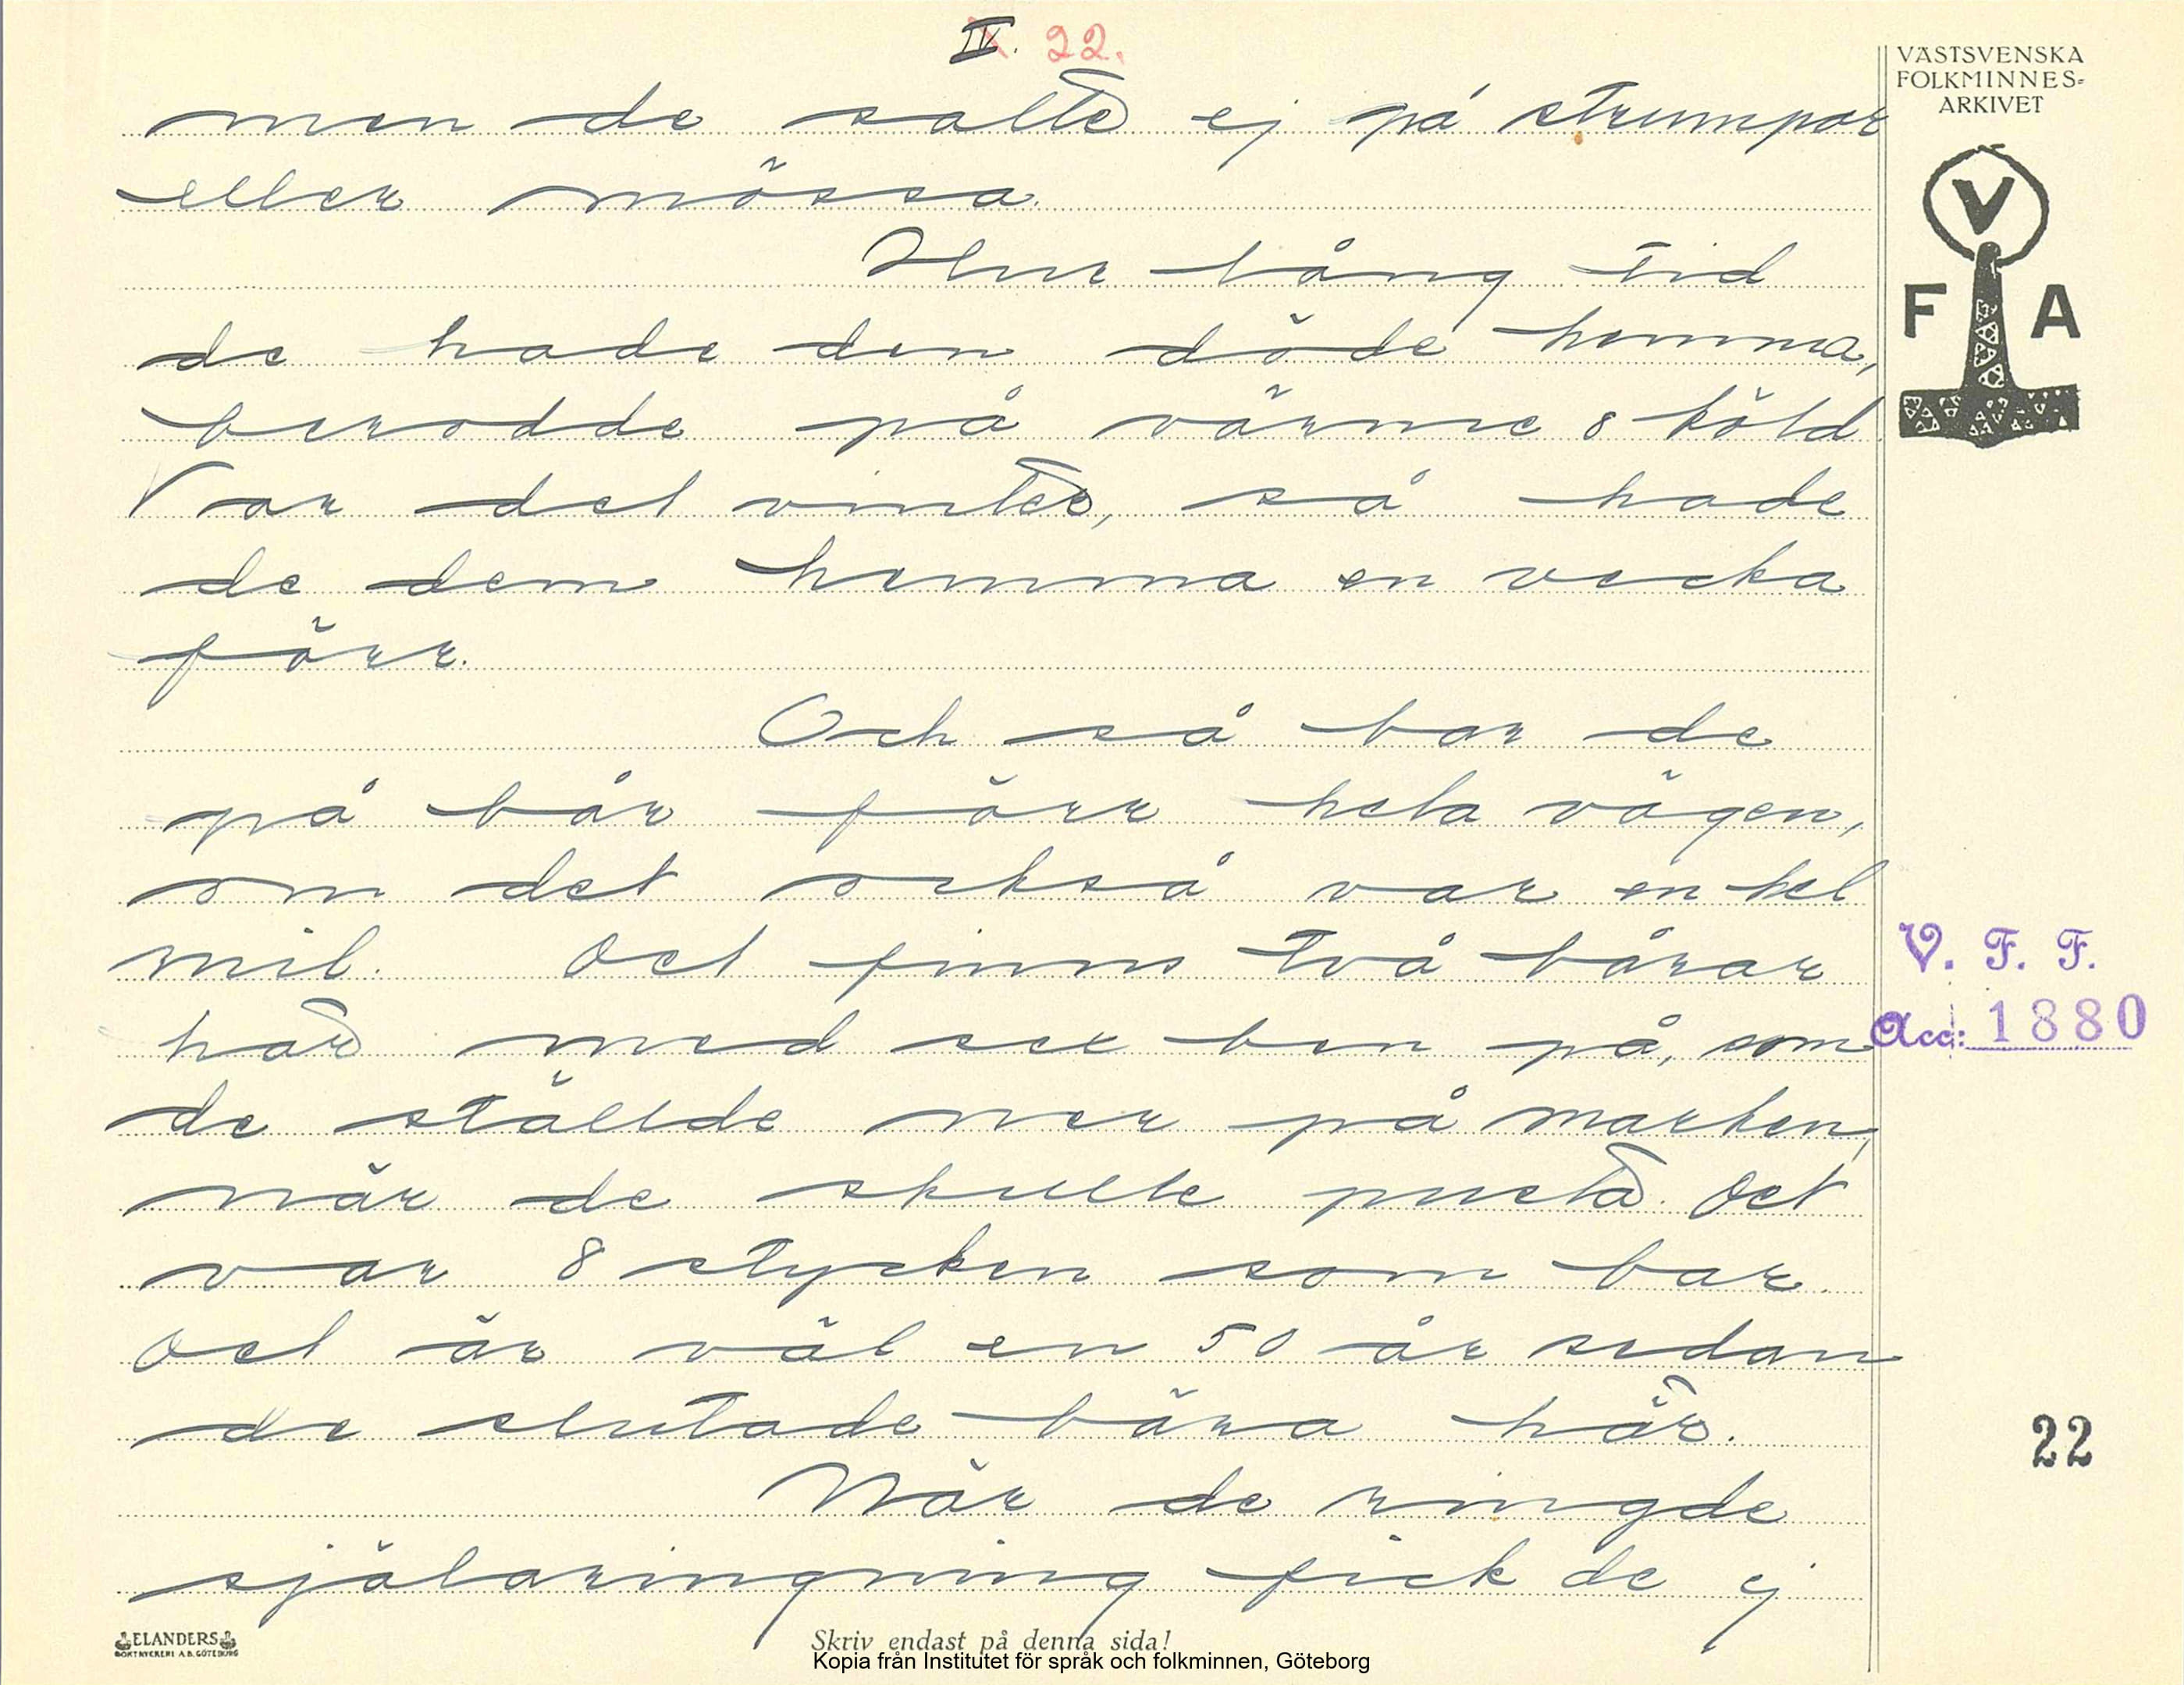 IV. 22.
VÄSTSVENSKA
FOLKMINNES=
ARKIVET
V
F A
men de satte ej på strumpor
eller mössa.
Hur lång tid
de hade den döde hemma,
berodde på värme o köld.
Var det vinter, så hade
de dem hemma en vecka
förr.
Och så bar de
på bår förr hela vägen,
om det också var en hel
mil. Det finns två bårar
här med sex ben på, som
de ställde ner på marken,
när de skulle pusta. Det
var 8 stycken som bar.
Det är väl en 50 år sedan
de slutade bära här.
När de ringde
själaringning fick de ej
V. F. F.
Acc: 1880
22
ELANDERS
BOKTRYCKERI A.B. GÖTEBORG
Skriv endast på denna sida!
Kopia från Institutet för språk och folkminnen, Göteborg